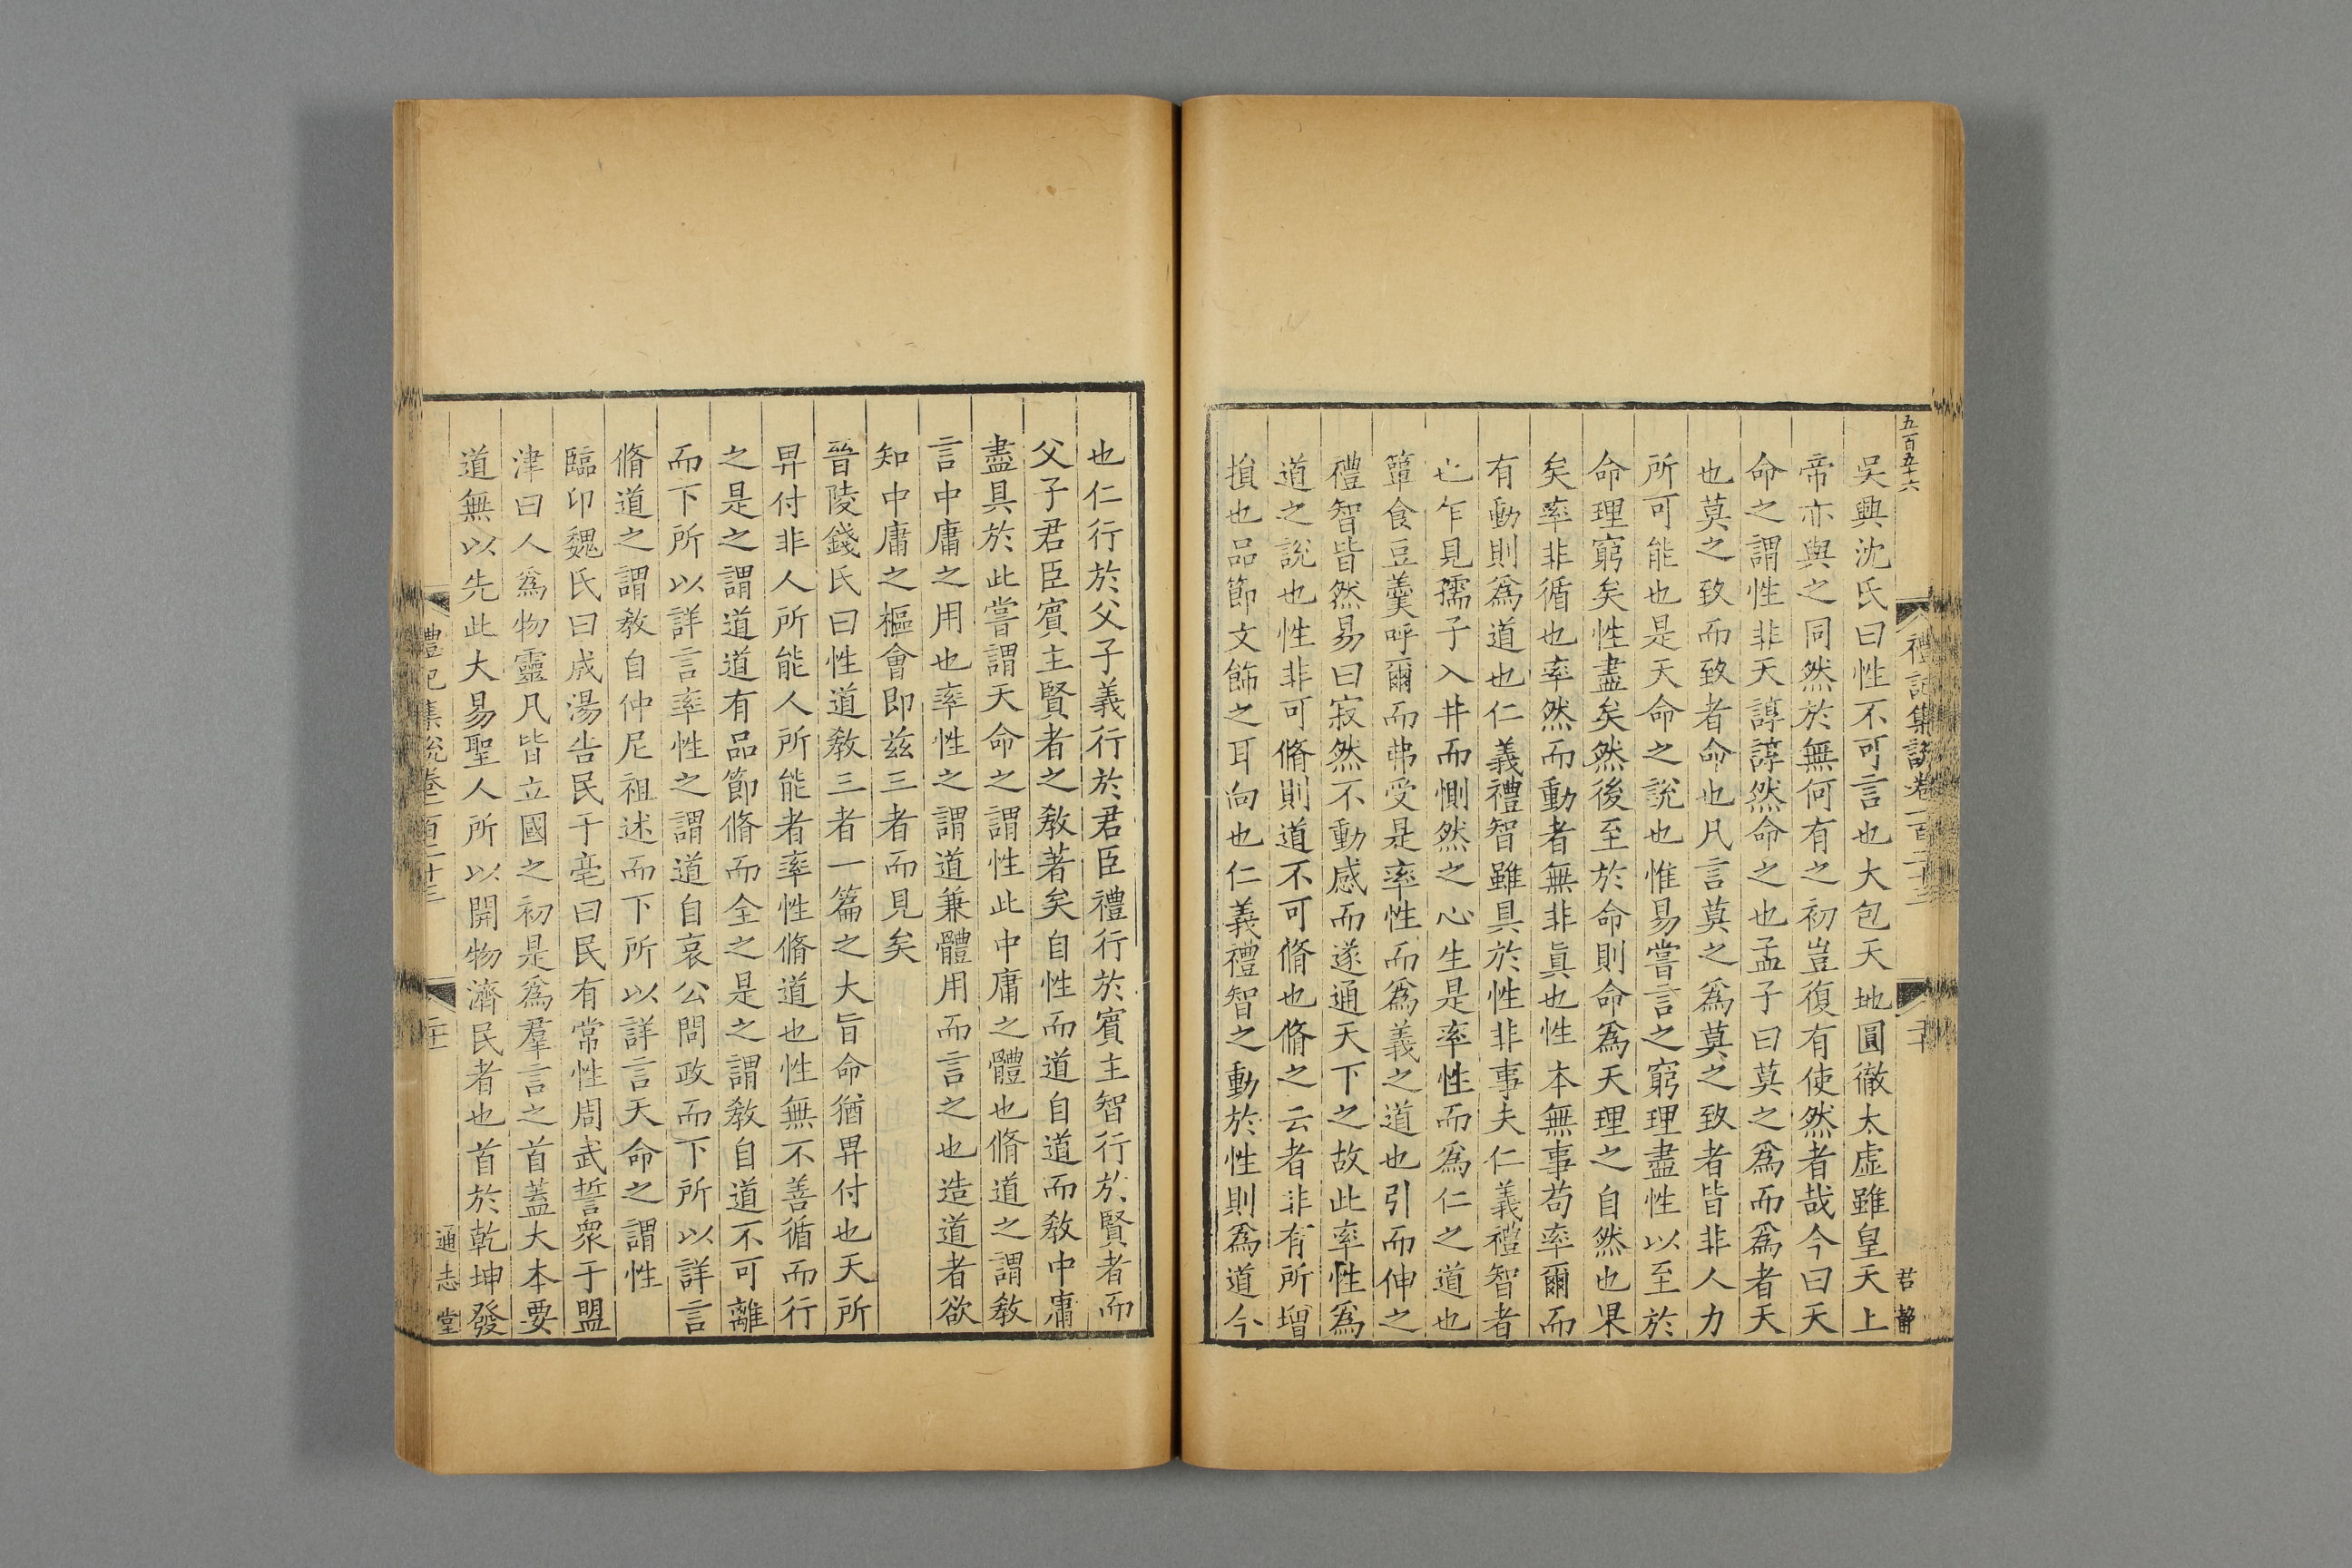 五百五十六
禮記集說卷一百二十三
二十
君靜
吳興沈氏曰性不可言也大包天地圓徹太虛雖皇天上
帝亦與之同然於無何有之初豈復有使然者哉今曰天
命之謂性非天諄諄然命之也孟子曰莫之爲而爲者天
也莫之致而致者命也凡言莫之爲莫之致者皆非人力
所可能也是天命之說也惟易嘗言之窮理盡性以至於
命理窮矣性盡矣然後至於命則命爲天理之自然也果
矣率非循也率然而動者無非眞也性本無事苟率爾而
有動則爲道也仁義禮智雖具於性非事夫仁義禮智者
也乍見孺子入井而惻然之心生是率性而爲仁之道也
簞食豆羹呼爾而弗受是率性而爲義之道也引而伸之
禮智皆然易曰寂然不動感而遂通天下之故此率性爲
道之說也性非可脩則道不可脩也脩之云者非有所增
損也品節文飾之耳向也仁義禮智之動於性則爲道今
也仁行於父子義行於君臣禮行於賓主智行於賢者而
父子君臣賓主賢者之敎著矣自性而道自道而敎中庸
盡具於此嘗謂天命之謂性此中庸之體也脩道之謂敎
言中庸之用也率性之謂道兼體用而言之也造道者欲
知中庸之樞會即茲三者而見矣
晉陵錢氏曰性道敎三者一篇之大旨命猶畀付也天所
畀付非人所能人所能者率性脩道也性無不善循而行
之是之謂道道有品節脩而全之是之謂敎自道不可離
而下所以詳言率性之謂道自哀公問政而下所以詳言
脩道之謂敎自仲尼祖述而下所以詳言天命之謂性
臨卭魏氏曰成湯告民于亳曰民有常性周武誓衆于盟
津曰人爲物靈凡皆立國之初是爲羣言之首蓋大本要
道無以先此大易聖人所以開物濟民者也首於乾坤發
禮記集說卷一百二十三
二十一
通志堂